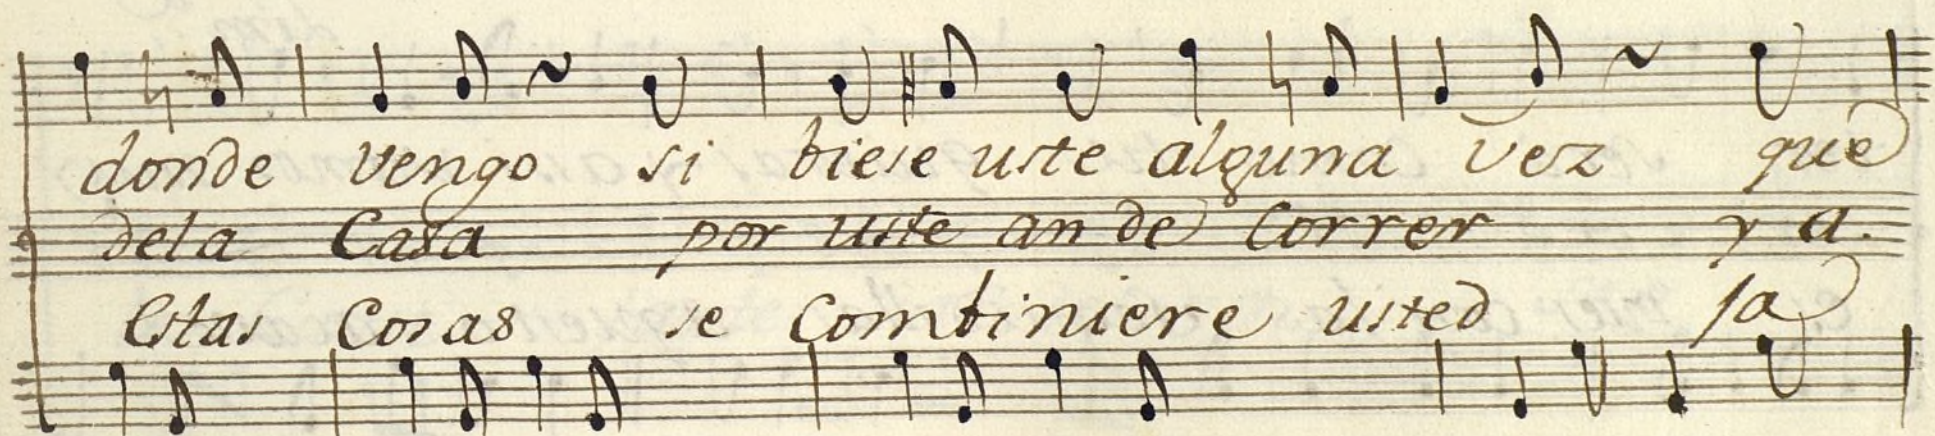 donde vengo si biese uste alguna vez que
dela Casa por uste an de Correr y a.
estas Cosas se Combiniere usted sa